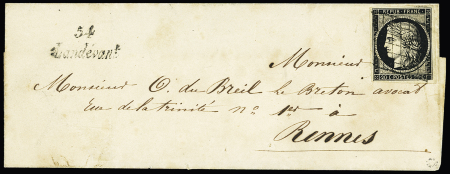 54
Landévant
REPUB. FRANC.
Monsieur
Monsieur O. du Breil le Breton avocat
rue de la trinité n° 1er à
Rennes